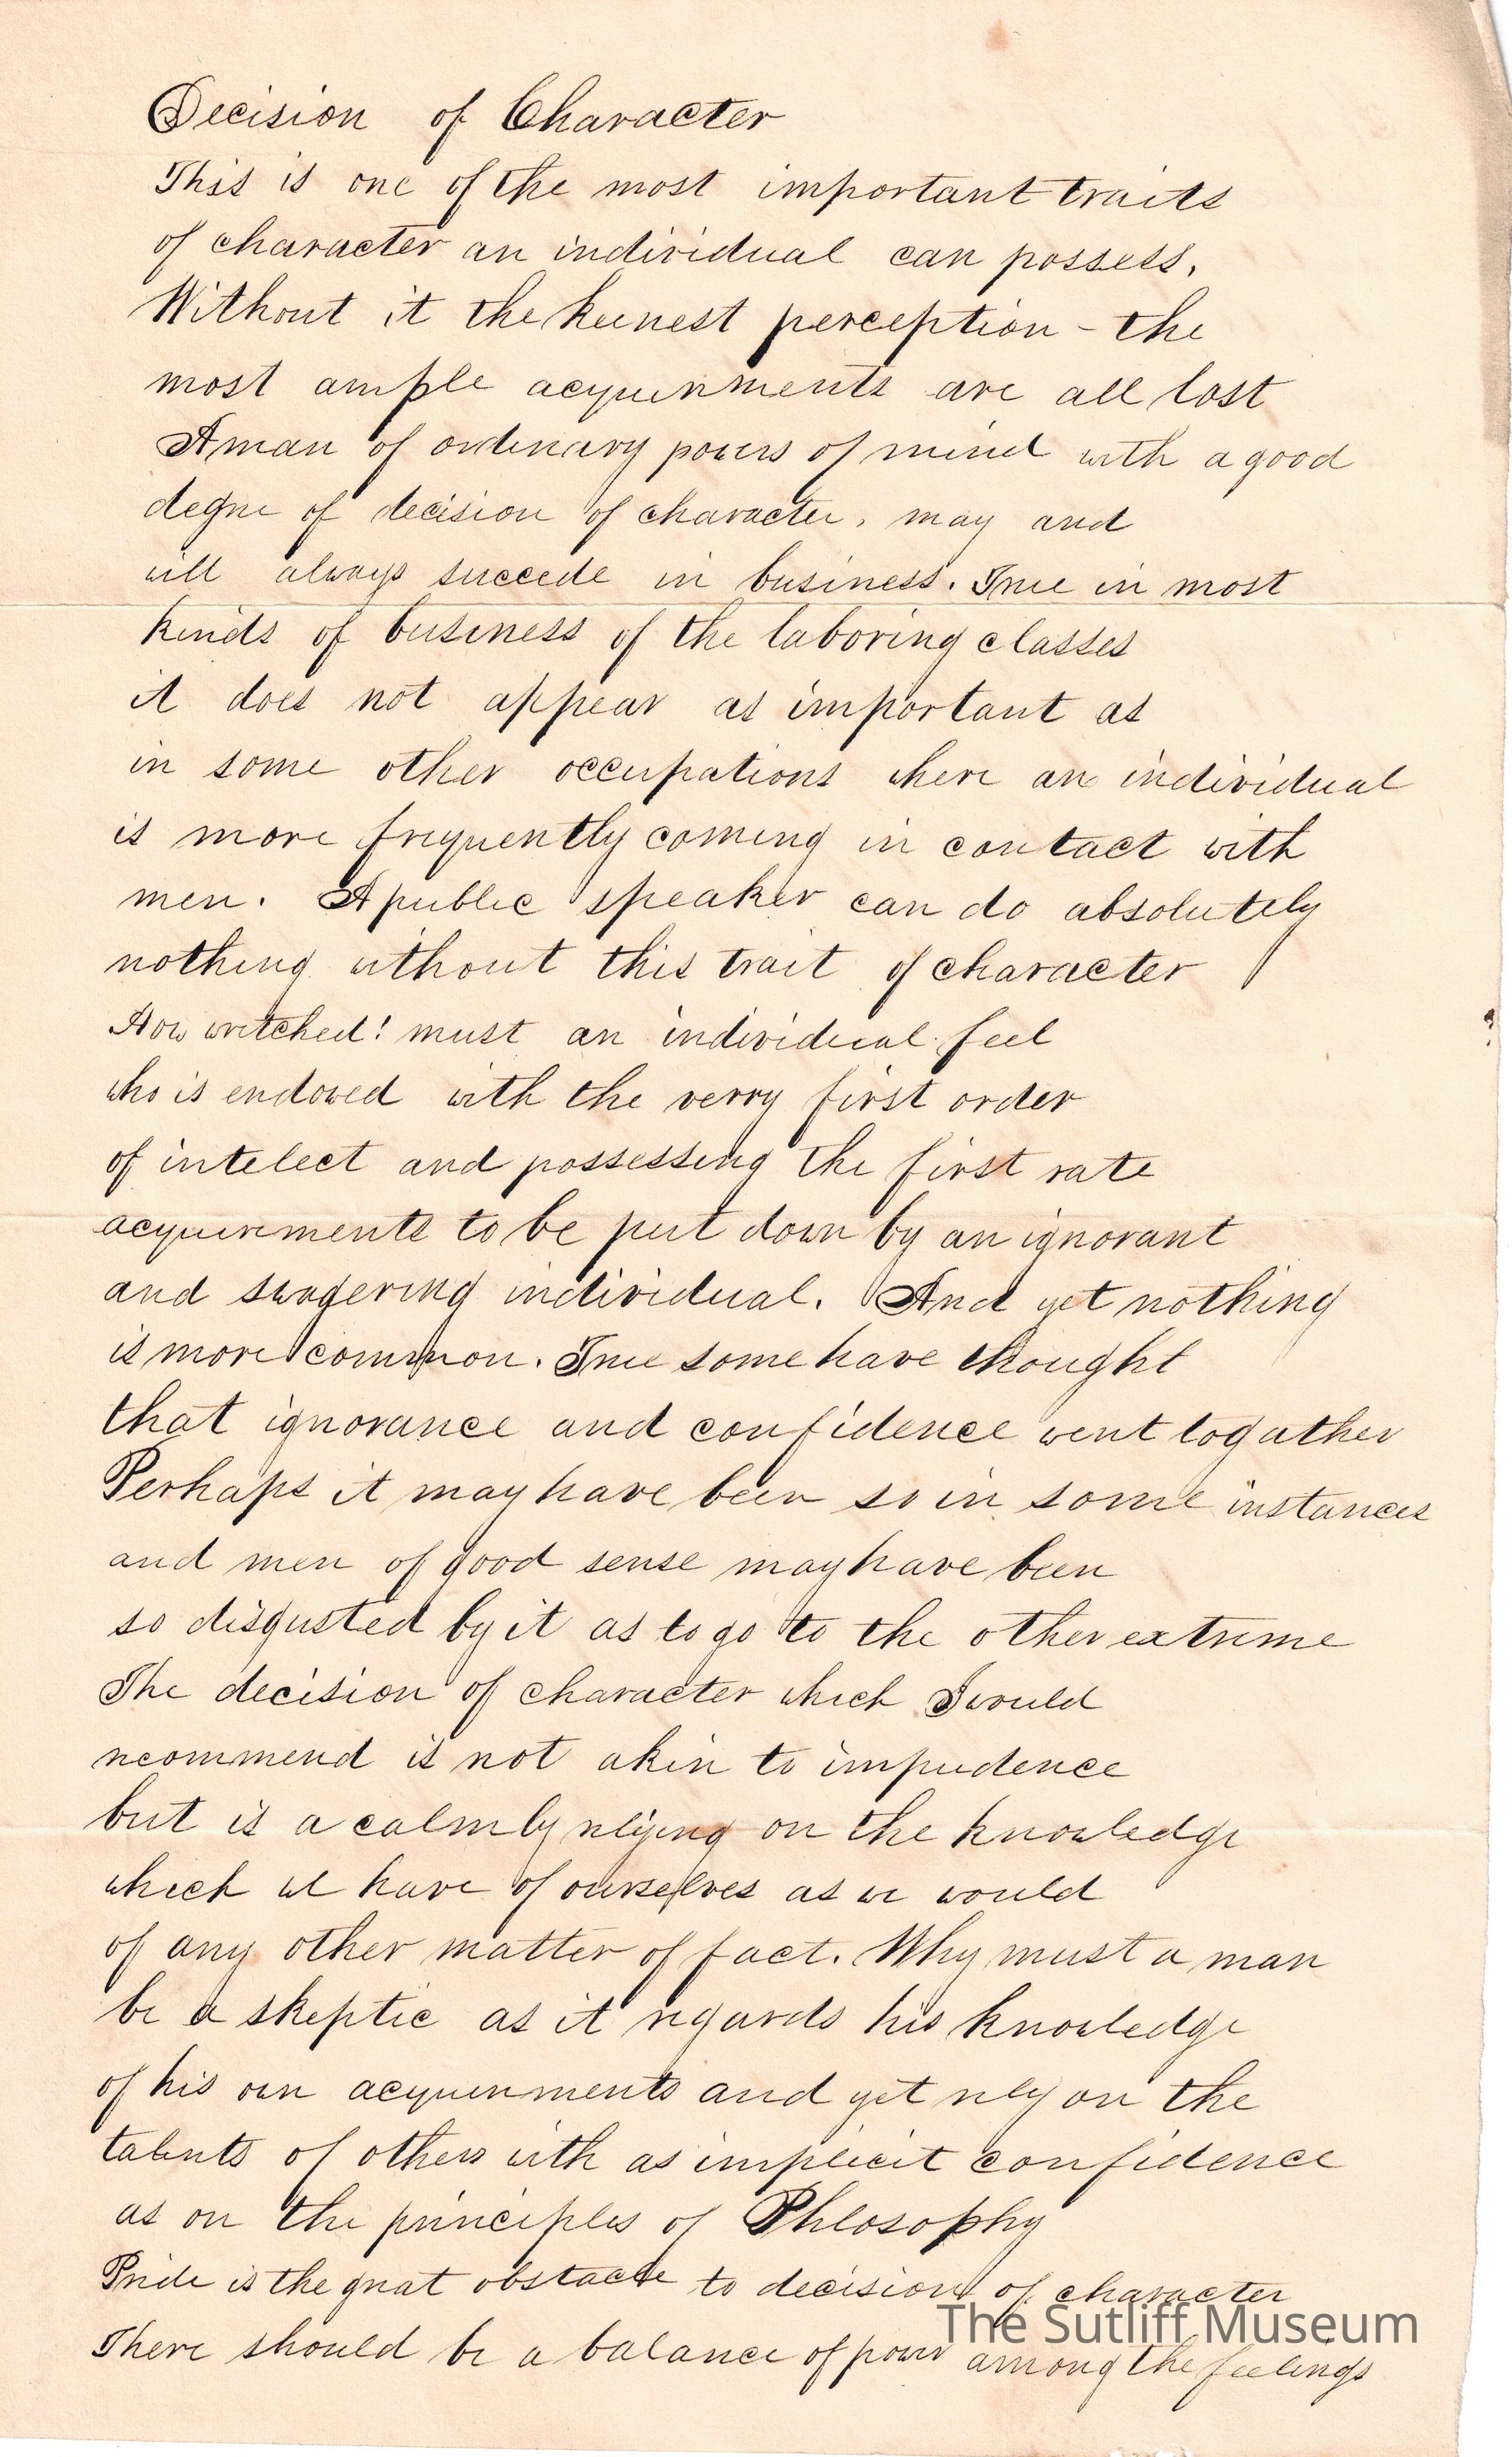 Decision of Character
This is one of the most important traits
of character an individual can possess.
Without it the keenest perception - the
most ample acquirnments are all lost
A man of ordinary powers of mind with a good
degree of decision of character, may and
will always succede in business. True in most
kinds of business of the laboring classes
it does not appear as important as
in some other occupations where an individual
is more frequently coming in contact with
men. A public speaker can do absolutely
nothing without this trait of character
How wretched! must an individual feel
who is endowed with the verry first order
of intelect and possessing the first rate
acquirements to be put down by an ignorant
and swagering individual. And yet nothing
is more common. True some have thought
that ignorance and confidence went togather
Perhaps it may have been so in some instances
and men of good sense may have been
so disgusted by it as to go to the other extreme
The decision of character which I would
recommend is not akin to impudence
but is a calmly relying on the knowledge
which we have of ourselves as we would
of any other matter of fact. Why must a man
be a skeptic as it regards his knowledge
of his own acquirenments and yet rely on the
talents of others with as implicit confidence
as on the principles of Phlosophy
Pride is the great obstacle to decision of character
There should be a balance of power among the feelings
The Sutliff Museum